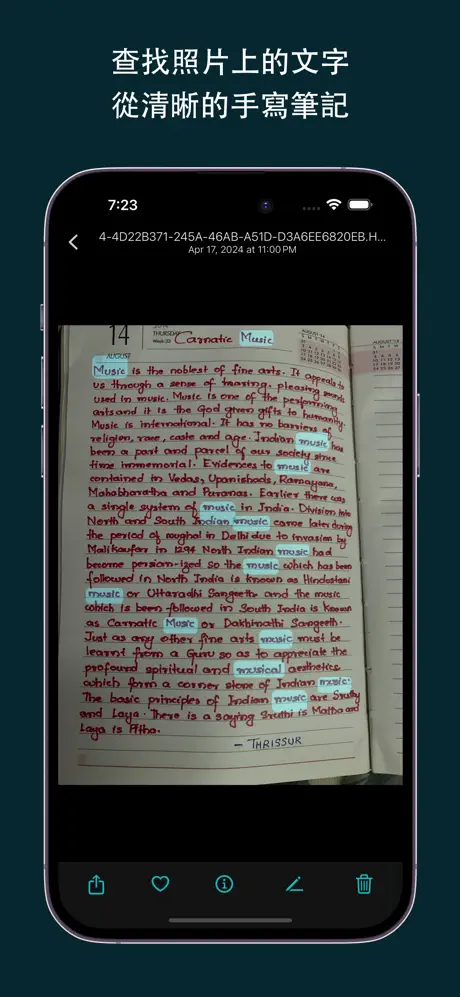 查找照片上的文字
從清晰的手寫筆記
7:23
4-4D22B371-245A-46AB-A51D-D3A6EE6820EB.H...
Apr 17, 2024 at 11:00 PM
14 THURSDAY
AUGUST
Carnatic Music
Music is the noblest of fine arts. It appeals to
us through a sense of hearing, pleasing sounds
used in music. Music is one of the performing
arts and it is the God given gifts to humanity.
Music is international. It has no barriers of
religion, race, caste and age. Indian music has
been a part and parcel of our society since
time immemorial. Evidences to music are
contained in Vedas, Upanishads, Ramayana,
Mahabharatha and Puranas. Earlier there was
a single system of music in India. Division into
North and South Indian music came later during
the period of moghal in Delhi due to invasion by
Malikaufar in 1294 North Indian music had
become persian-ized so the music which has been
followed in North India is known as Hindustani
music or Uttaradhi Sangeeth and the music
which is been followed in South India is known
as Carnatic Music or Dakhinathi Sangeeth.
Just as any other fine arts music must be
learnt from a Guru so as to appreciate the
profound spiritual and musical aesthetics
which form a corner stone of Indian music.
The basic principles of Indian music are Sruthy
and Laya. There is a saying Sruthi is Matha and
Laya is Pitha.
– THRISSUR